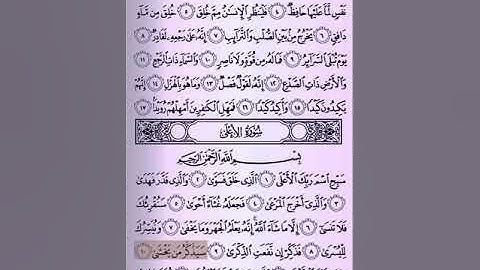 نَفْسٍ لَّمَّا عَلَيْهَا حَافِظٌ ٤ فَلْيَنظُرِ الْإِنسَٰنُ مِمَّ خُلِقَ ٥ خُلِقَ مِن مَّآءٍ
دَافِقٍ ٦ يَخْرُجُ مِنۢ بَيْنِ الصُّلْبِ وَالتَّرَآئِبِ ٧ إِنَّهُۥ عَلَىٰ رَجْعِهِۦ لَقَادِرٌ ٨
يَوْمَ تُبْلَى السَّرَآئِرُ ٩ فَمَا لَهُۥ مِن قُوَّةٍ وَلَا نَاصِرٍ ١٠ وَالسَّمَآءِ ذَاتِ الرَّجْعِ ١١
وَالْأَرْضِ ذَاتِ الصَّدْعِ ١٢ إِنَّهُۥ لَقَوْلٌ فَصْلٌ ١٣ وَمَا هُوَ بِالْهَزْلِ ١٤ إِنَّهُمْ
يَكِيدُونَ كَيْدًا ١٥ وَأَكِيدُ كَيْدًا ١٦ فَمَهِّلِ الْكَٰفِرِينَ أَمْهِلْهُمْ رُوَيْدًۢا ١٧
سُورَةُ الْأَعْلَىٰ
بِسْمِ اللَّهِ الرَّحْمَٰنِ الرَّحِيمِ
سَبِّحِ اسْمَ رَبِّكَ الْأَعْلَى ١ الَّذِي خَلَقَ فَسَوَّىٰ ٢ وَالَّذِي قَدَّرَ فَهَدَىٰ
٣ وَالَّذِيٓ أَخْرَجَ الْمَرْعَىٰ ٤ فَجَعَلَهُۥ غُثَآءً أَحْوَىٰ ٥ سَنُقْرِئُكَ
فَلَا تَنسَىٰٓ ٦ إِلَّا مَا شَآءَ اللَّهُ ۚ إِنَّهُۥ يَعْلَمُ الْجَهْرَ وَمَا يَخْفَىٰ ٧ وَنُيَسِّرُكَ
لِلْيُسْرَىٰ ٨ فَذَكِّرْ إِن نَّفَعَتِ الذِّكْرَىٰ ٩ سَيَذَّكَّرُ مَن يَخْشَىٰ ١٠